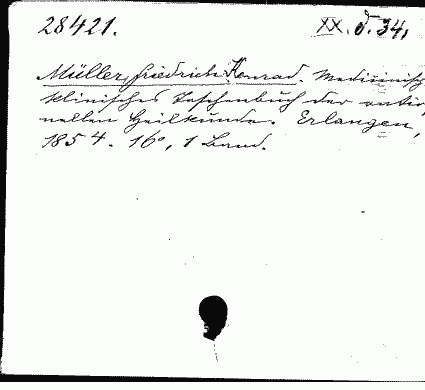 28421. XX. d. 34,
Müller, Friedrich Konrad. Medicinisch
klinisches Taschenbuch der ratio,
nellen Heilkunde. Erlangen,
1854. 16°, 1 Band.